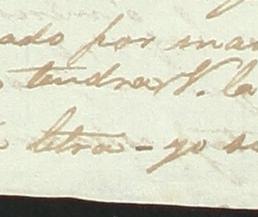 ado por man
tendra V. la
letra - yo su